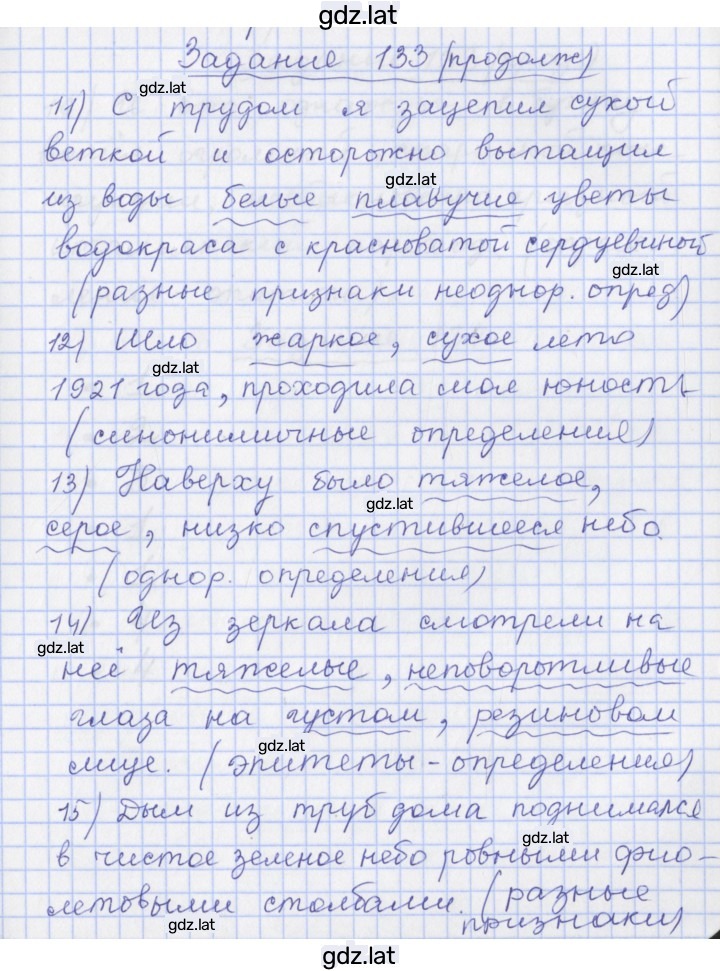 gdz.lat
Задание 133 (продолж)
gdz.lat
11) С трудом я зацепил сухой
веткой и осторожно вытащил
gdz.lat
из воды белые плавучие цветы
водокраса с красноватой сердцевиной
gdz.lat
(разные признаки неоднор. опред)
12) Шло жаркое, сухое лето
gdz.lat
1921 года, проходила моя юность
(синонимичные определения)
13) Наверху было тяжелое,
gdz.lat
серое, низко спустившееся небо.
(однор. определения)
14) Из зеркала смотрели на
gdz.lat
неё тяжелые, неповоротливые
глаза на густом, резиновом
gdz.lat
лице. (эпитеты - определения)
15) Дым из труб дома поднимался
gdz.lat
в чистое зеленое небо ровными фио-
летовыми столбами. (разные
признаки)
gdz.lat
gdz.lat